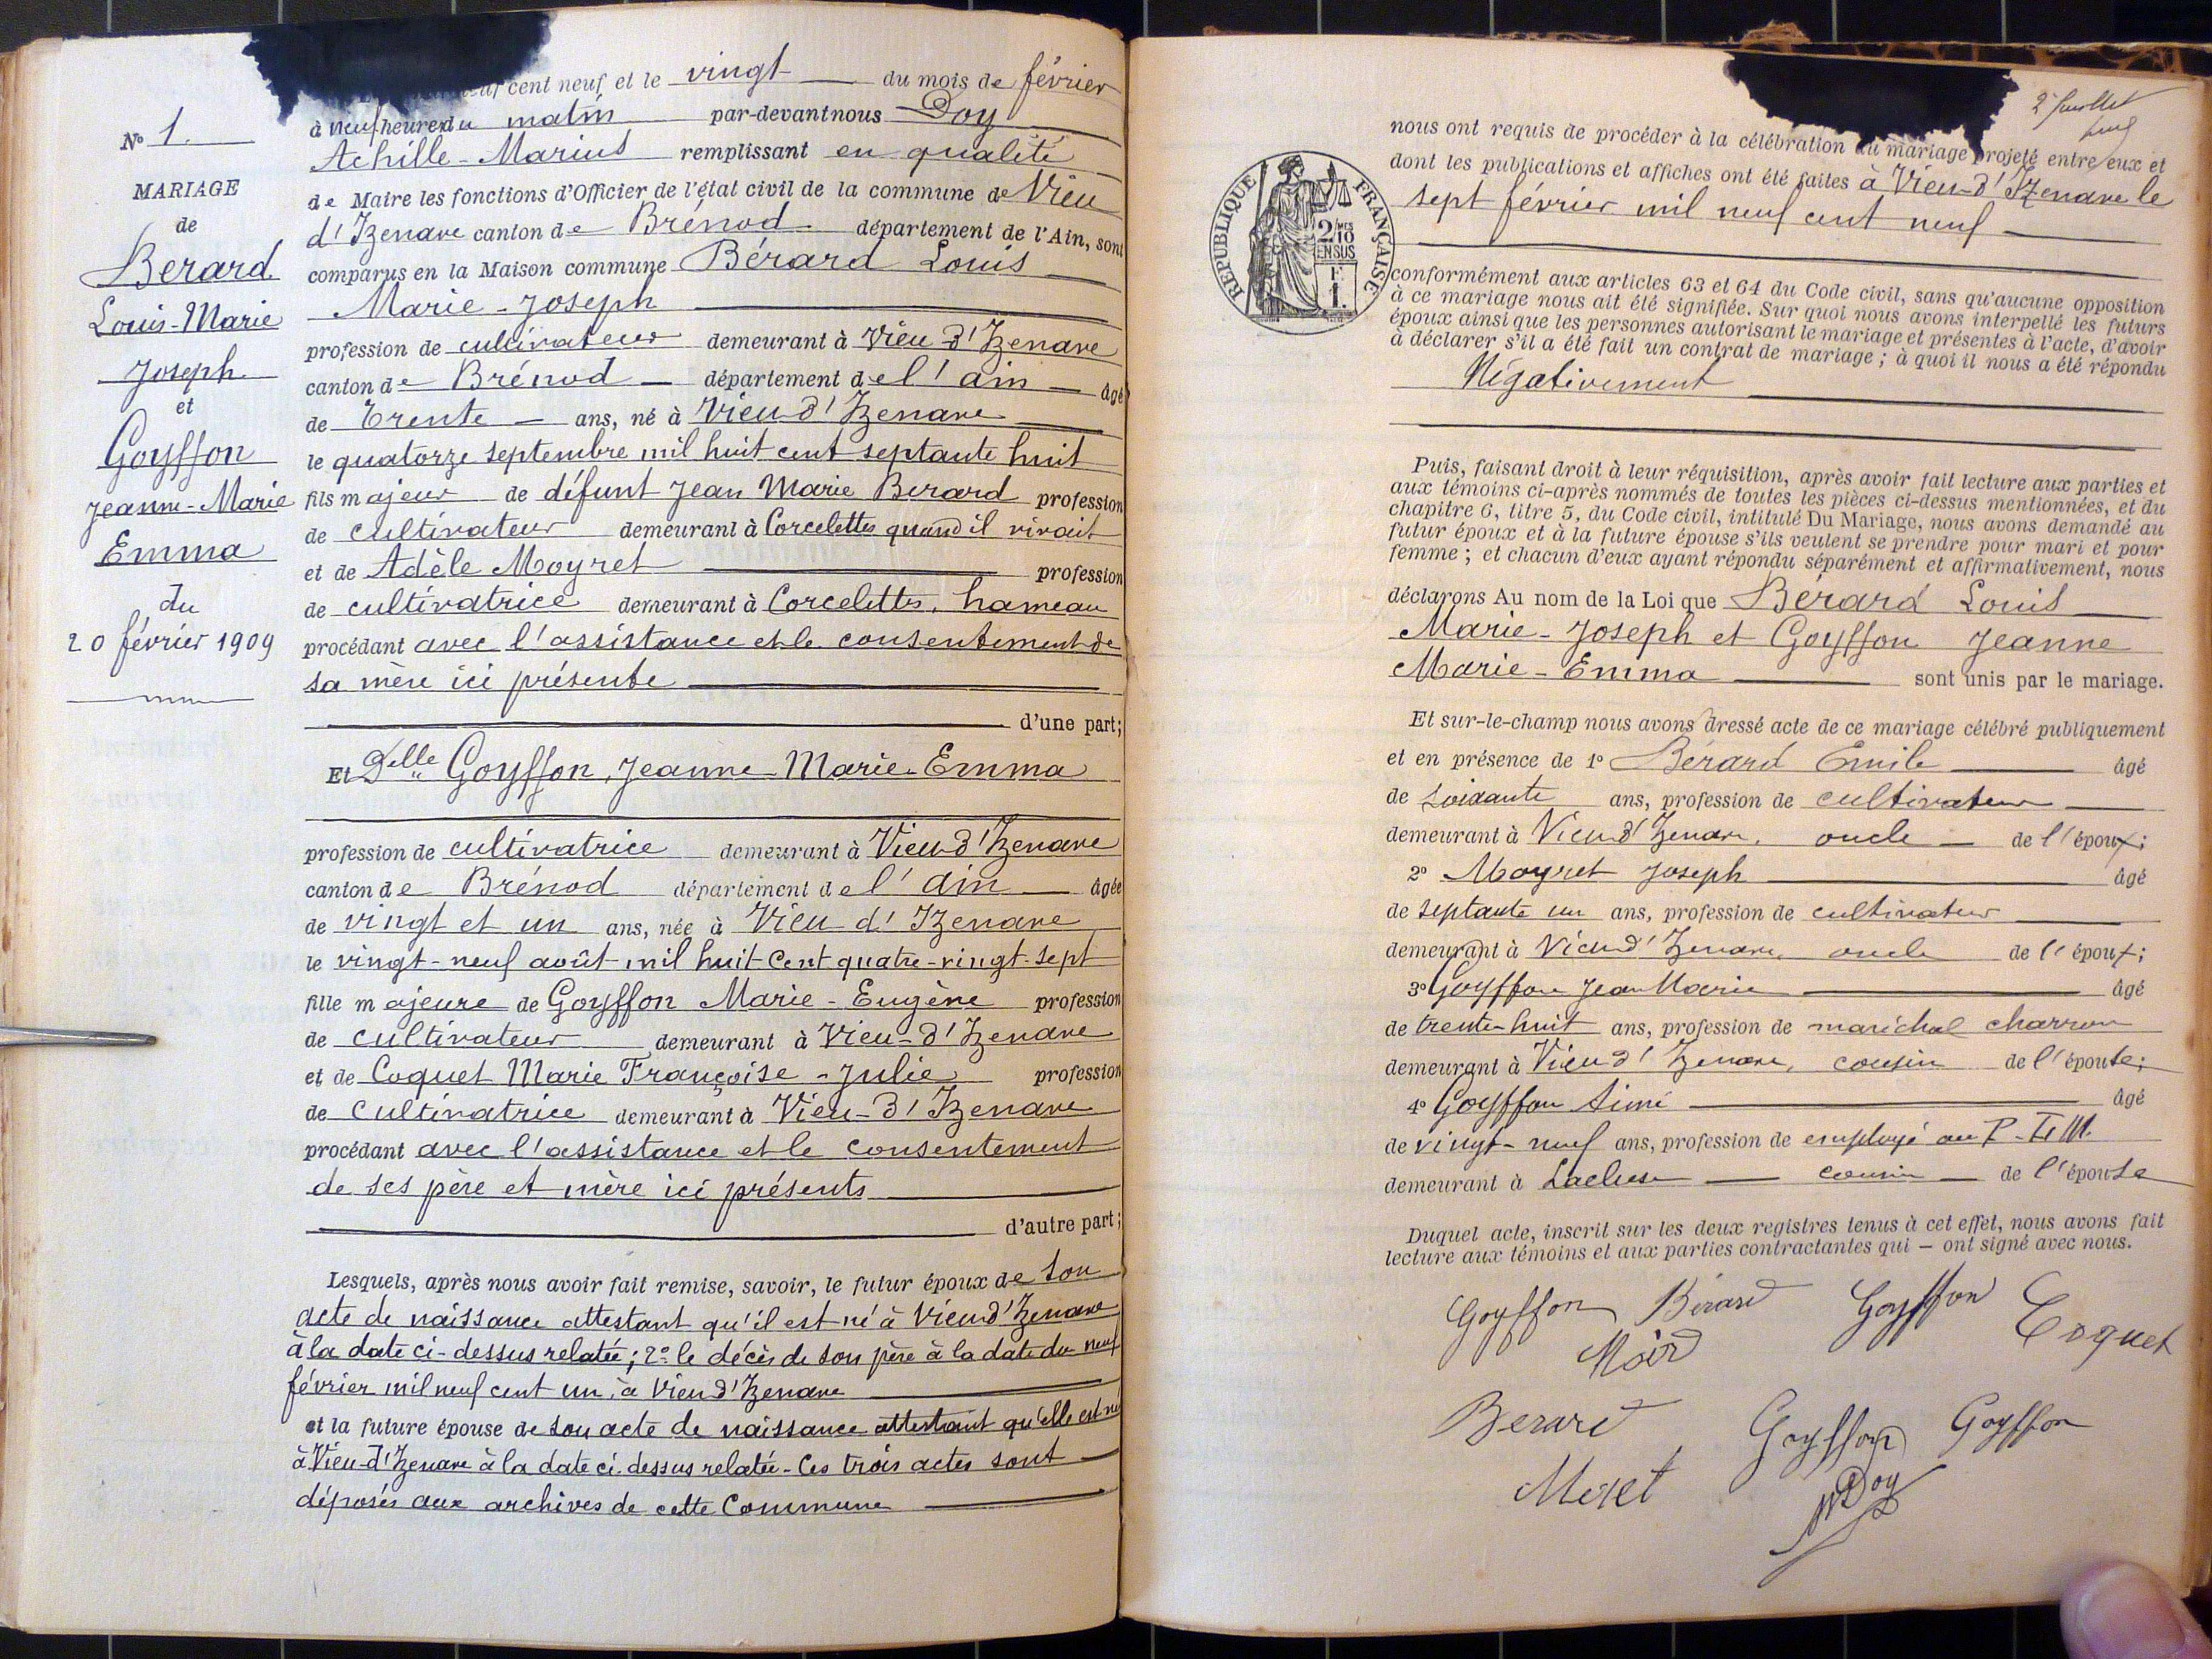 N° 1.
MARIAGE
de
Berard
Louis-Marie
Joseph
et
Goyffon
Jeanne-Marie
Emma
du
20 février 1909
cent neuf et le vingt du mois de février
à neuf heures du matin par-devant nous Doy
Achille-Marius remplissant en qualité
de Maire les fonctions d'Officier de l'état civil de la commune de Vieu
d'Izenave canton de Brénod département de l'Ain, sont
comparus en la Maison commune Bérard Louis
Marie-Joseph
profession de cultivateur demeurant à Vieu d'Izenave
canton de Brénod département de l'ain âgé
de trente ans, né à Vieu d'Izenave
le quatorze septembre mil huit cent septante huit
fils majeur de défunt Jean Marie Berard profession
de cultivateur demeurant à Corcelettes quand il vivait
et de Adèle Moyret profession
de cultivatrice demeurant à Corcelettes, hameau
procédant avec l'assistance et le consentement de
sa mère ici présente
d'une part;
Et Delle Goyffon, Jeanne-Marie-Emma
profession de cultivatrice demeurant à Vieu d'Izenave
canton de Brénod département de l'ain âgée
de vingt et un ans, née à Vieu d'Izenave
le vingt-neuf août mil huit cent quatre-vingt-sept
fille majeure de Goyffon Marie-Eugène profession
de cultivateur demeurant à Vieu-d'Izenave
et de Coquet Marie Françoise-Julie profession
de cultivatrice demeurant à Vieu-d'Izenave
procédant avec l'assistance et le consentement
de ses père et mère ici présents
d'autre part;
Lesquels, après nous avoir fait remise, savoir, le futur époux de son
acte de naissance attestant qu'il est né à Vieu d'Izenave
à la date ci-dessus relatée; 2° le décès de son père à la date du neuf
février mil neuf cent un, à Vieu d'Izenave
et la future épouse de son acte de naissance attestant qu'elle est née
à Vieu-d'Izenave à la date ci-dessus relatée - Ces trois actes sont
déposés aux archives de cette Commune
2e feuillet
RÉPUBLIQUE FRANÇAISE
2/10
EN SUS
1F.
nous ont requis de procéder à la célébration du mariage projeté entre eux et
dont les publications et affiches ont été faites à Vieu-d'Izenave le
sept février mil neuf cent neuf
conformément aux articles 63 et 64 du Code civil, sans qu'aucune opposition
à ce mariage nous ait été signifiée. Sur quoi nous avons interpellé les futurs
époux ainsi que les personnes autorisant le mariage et présentes à l'acte, d'avoir
à déclarer s'il a été fait un contrat de mariage; à quoi il nous a été répondu
Négativement
Puis, faisant droit à leur réquisition, après avoir fait lecture aux parties et
aux témoins ci-après nommés de toutes les pièces ci-dessus mentionnées, et du
chapitre 6, titre 5, du Code civil, intitulé Du Mariage, nous avons demandé au
futur époux et à la future épouse s'ils veulent se prendre pour mari et pour
femme; et chacun d'eux ayant répondu séparément et affirmativement, nous
déclarons Au nom de la Loi que Bérard Louis
Marie-Joseph et Goyffon Jeanne
Marie-Emma sont unis par le mariage.
Et sur-le-champ nous avons dressé acte de ce mariage célébré publiquement
et en présence de 1° Bérard Emile âgé
de soixante ans, profession de cultivateur
demeurant à Vieu d'Izenave, oncle de l'époux;
2° Moyret Joseph âgé
de septante un ans, profession de cultivateur
demeurant à Vieu d'Izenave, oncle de l'époux;
3° Goyffon Jean Marie âgé
de trente-huit ans, profession de maréchal charron
demeurant à Vieu d'Izenave, cousin de l'épouse;
4° Goyffon Aimé âgé
de vingt-neuf ans, profession de employé au P-L-M.
demeurant à Lacluse cousin de l'épouse
Duquel acte, inscrit sur les deux registres tenus à cet effet, nous avons fait
lecture aux témoins et aux parties contractantes qui - ont signé avec nous.
Goyffon Bérard Goyffon Coquet
Berard Goyffon Goyffon
Doy